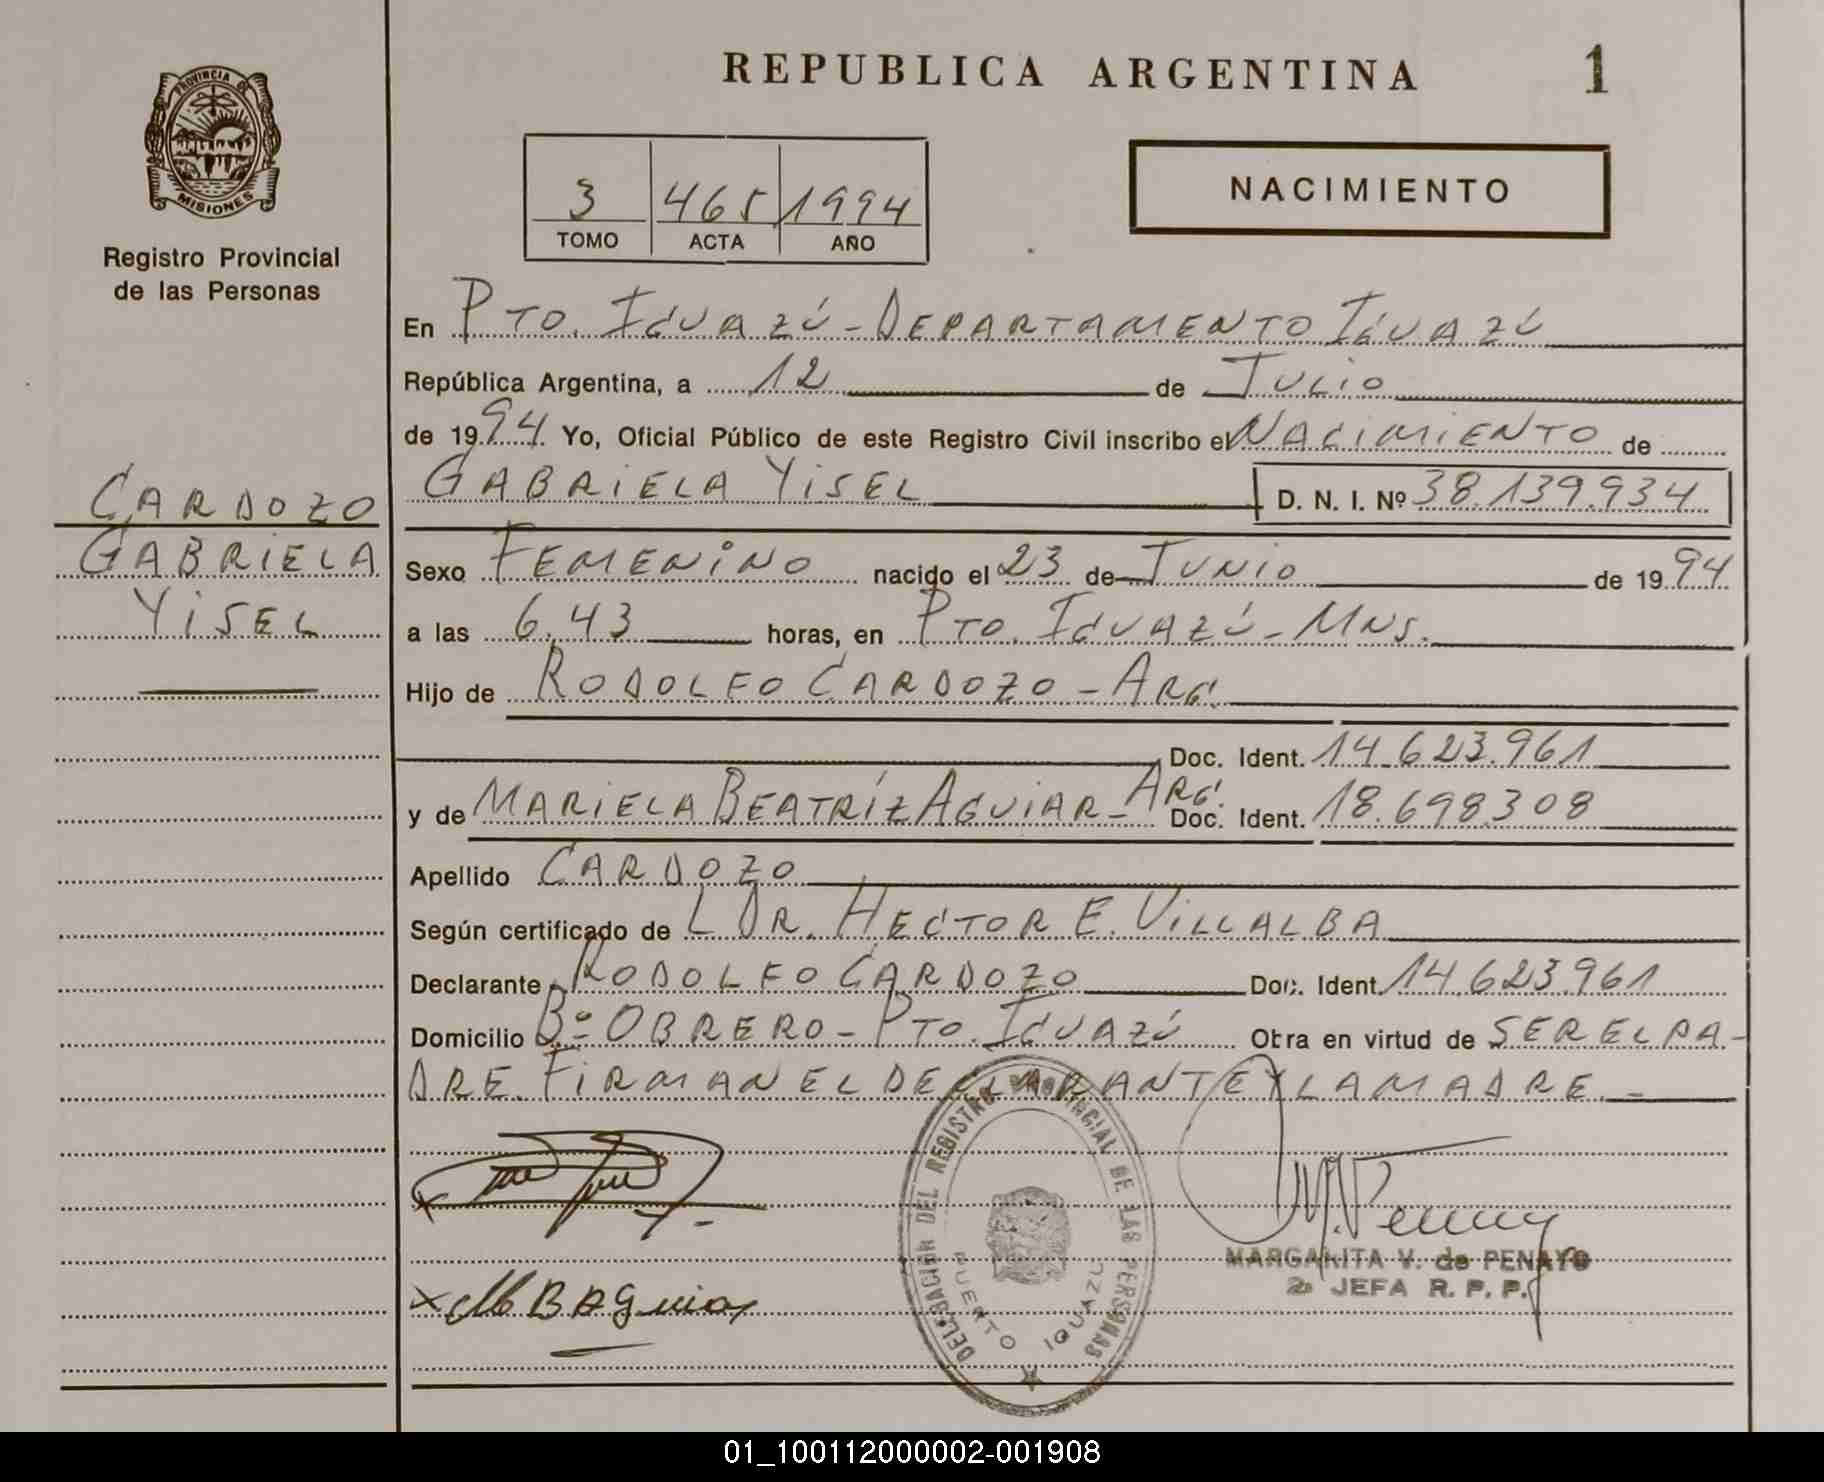 REPUBLICA ARGENTINA 1
PROVINCIA DE
MISIONES
Registro Provincial
de las Personas
3 465 1994
TOMO ACTA AÑO
NACIMIENTO
En PTO. IGUAZÚ - DEPARTAMENTO IGUAZÚ
República Argentina, a 12 de JULIO
de 1994 Yo, Oficial Público de este Registro Civil inscribo el NACIMIENTO de
GABRIELA YISEL D. N. I. Nº 38.139.934
CARDOZO
GABRIELA
YISEL
Sexo FEMENINO nacido el 23 de JUNIO de 1994
a las 6,43 horas, en PTO. IGUAZÚ - MNS.
Hijo de RODOLFO CARDOZO - ARG.
Doc. Ident. 14.623.961
y de MARIELA BEATRÍZ AGUIAR - ARG. Doc. Ident. 18.698.308
Apellido CARDOZO
Según certificado de L DR. HECTOR E. VILLALBA
Declarante RODOLFO CARDOZO Doc. Ident. 14.623.961
Domicilio Bº OBRERO - PTO. IGUAZÚ Obra en virtud de SER EL PA-
DRE. FIRMAN EL DECLARANTE Y LA MADRE. -
DELEGACION DEL REGISTRO PROVINCIAL DE LAS PERSONAS
PUERTO IGUAZU
MARGARITA V. de PENAYO
2ª JEFA R. P. P.
x MBAguiar
01_100112000002-001908